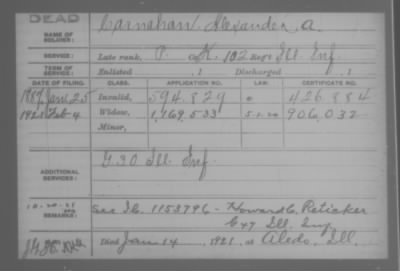 DEAD
NAME OF SOLDIER: Carnahan, Alexander, A.
SERVICE: Late rank, P. Co. K, 102 Reg't Ill. Inf.
TERM OF SERVICE: Enlisted , 1 Discharged , 1
DATE OF FILING. CLASS. APPLICATION NO. LAW. CERTIFICATE NO.
1887 Jan 25 Invalid, 594.829 426.884
1921 Feb 4 Widow, 1,169,533 5-1-20 906,032
Minor,
ADDITIONAL SERVICES: G 30 Ill. Inf.
10-20-21
REMARKS: See Ib. 1153796 - Howard C. Reticker
C 47 Ill. Inf.
Died Jan. 14, 1921, at Aledo, Ill.